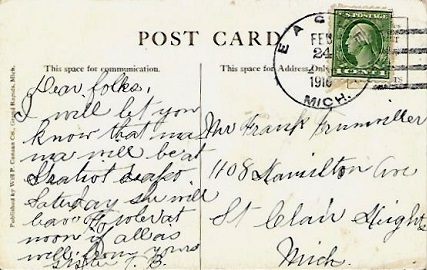 POST CARD
This space for communication.
This space for Address Only
EAG
FEB
24
1916
MICH.
U.S. POSTAGE
1 CENT 1
Published by Will P. Canaan Co., Grand Rapids, Mich.
Dear folks,
I will let you
know that ma
ma will be at
Saturday she will
at
noon if all is
well. From yours
Sister T. B.
Mr Frank
1108 Hamilton Ave
St Clair Heights
Mich.